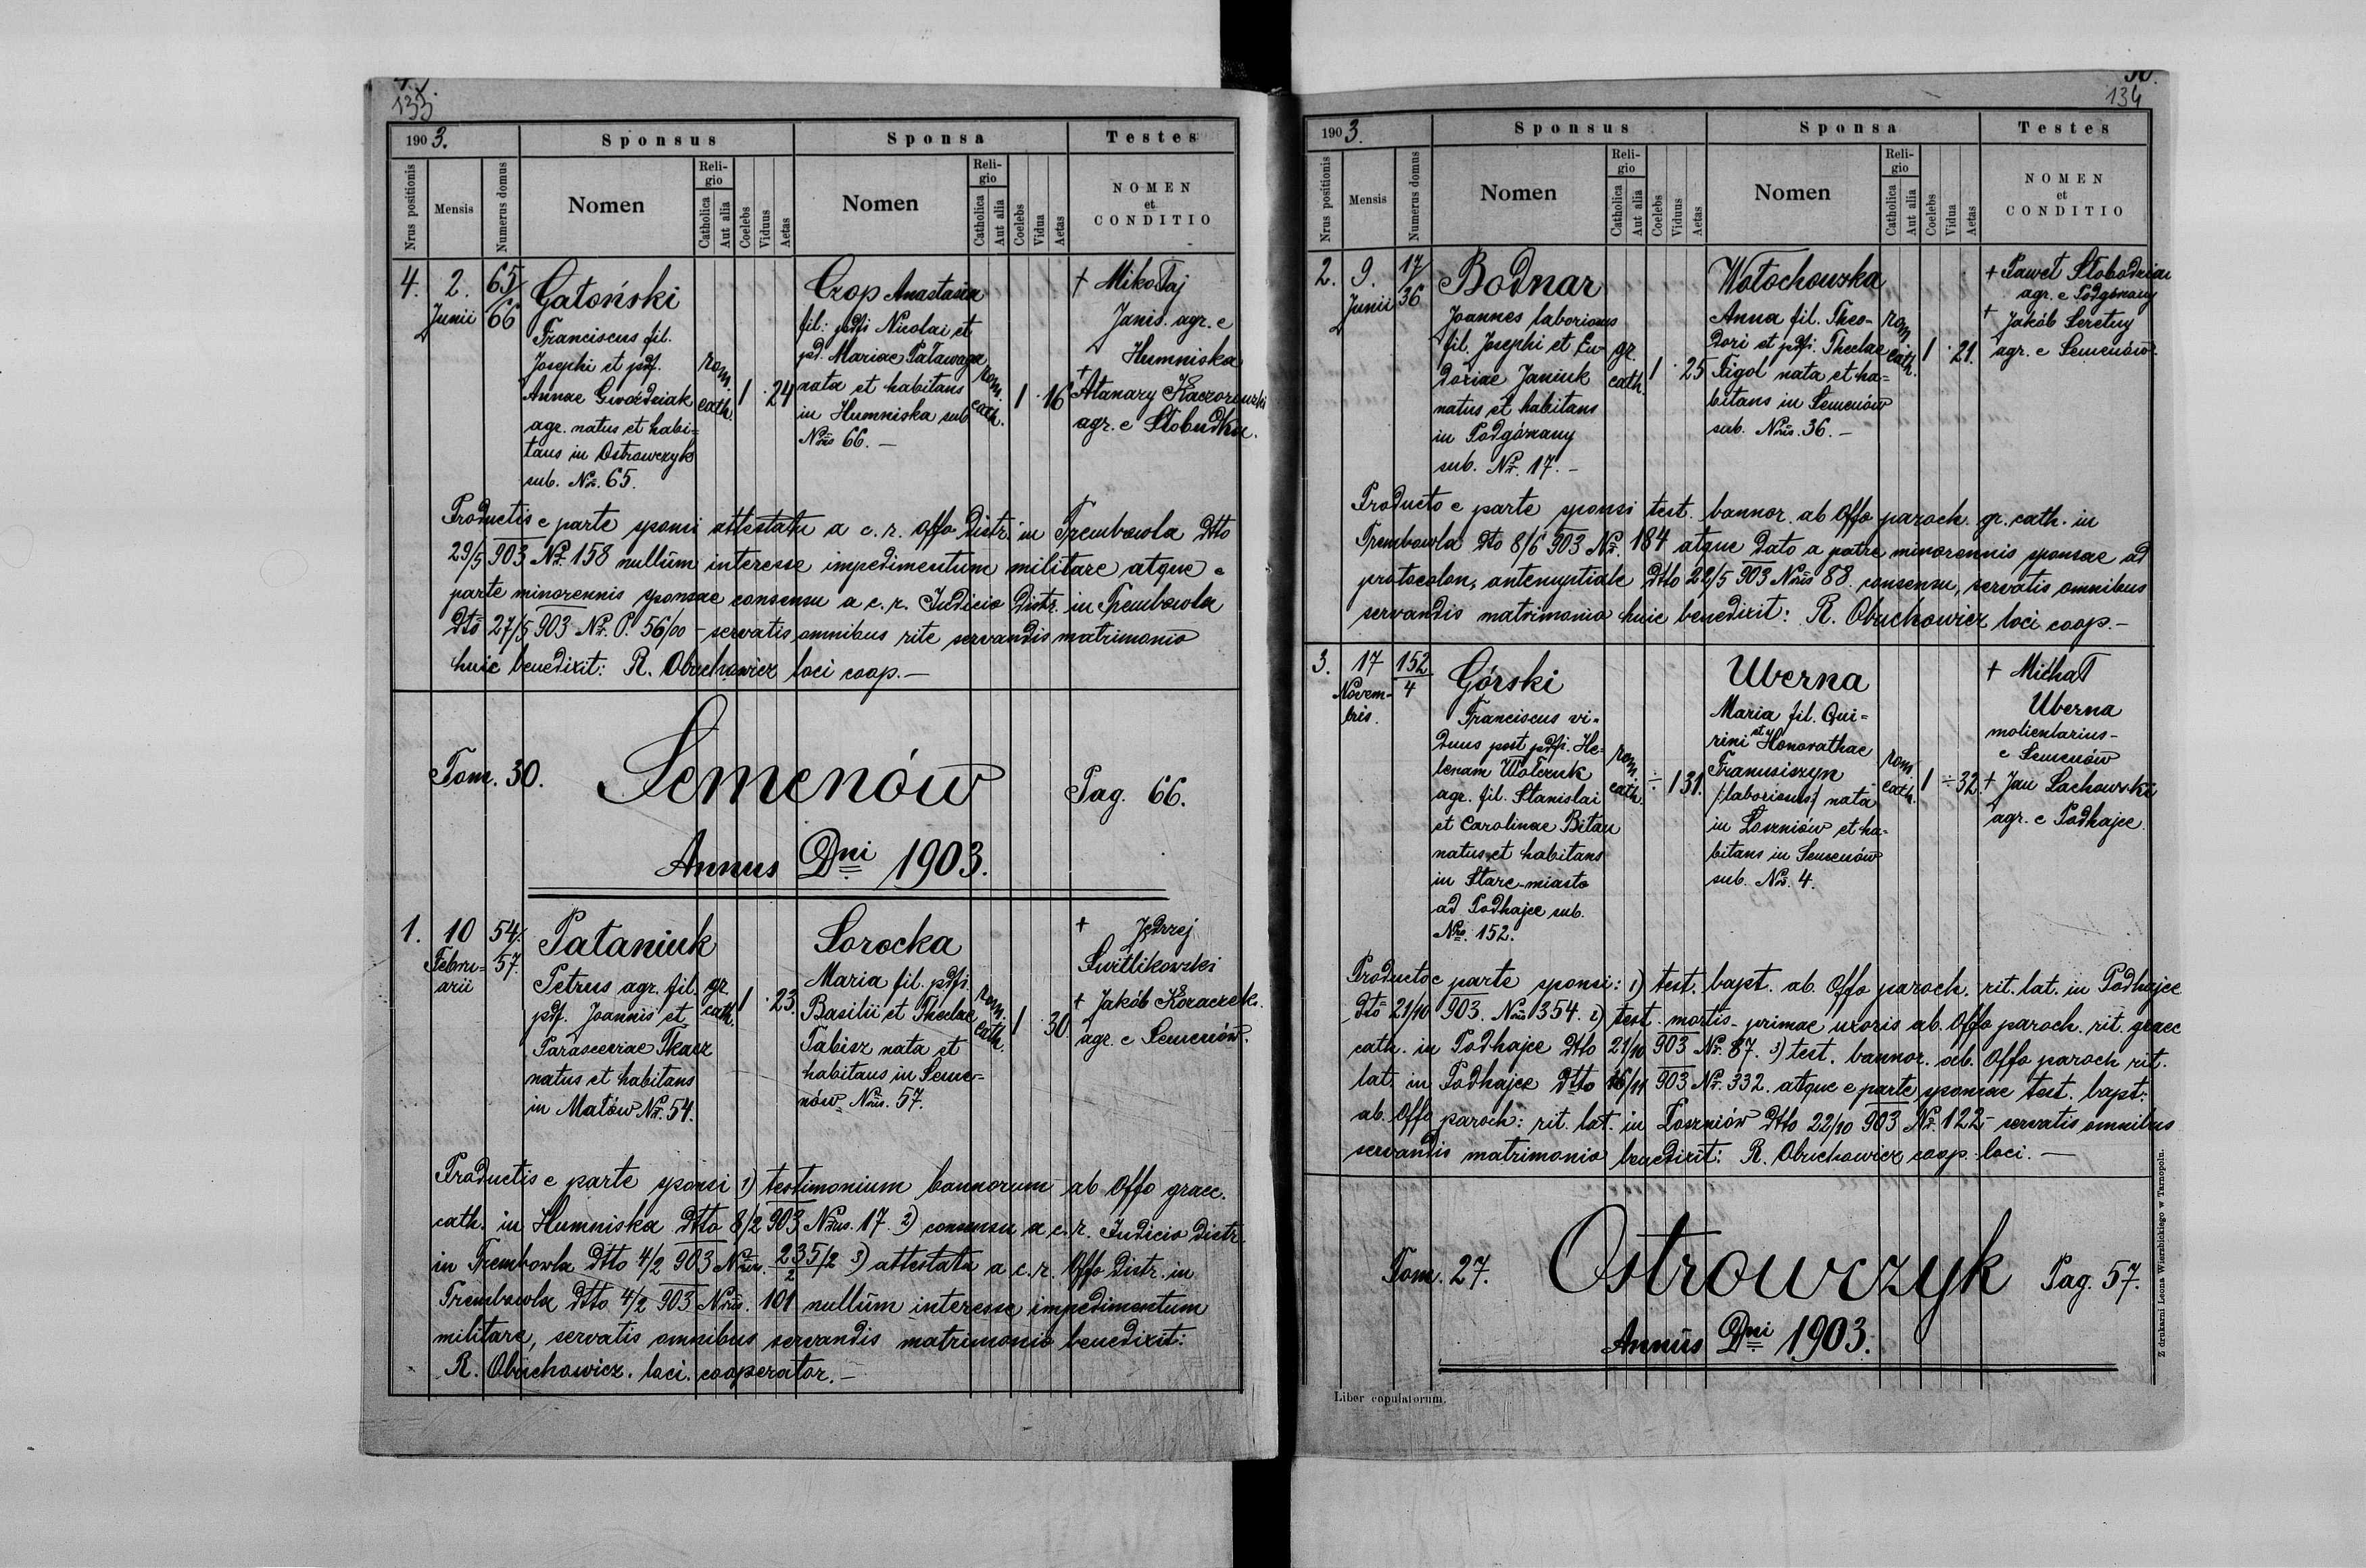 133
1903.
Sponsus
Sponsa
Testes
Nrus positionis
Mensis
Numerus domus
Nomen
Religio
Catholica
Aut alia
Coelebs
Viduus
Aetas
Nomen
Religio
Catholica
Aut alia
Coelebs
Vidua
Aetas
NOMEN
et
CONDITIO
4.
2.
Junii
65/
66
Gatoński
Franciscus fil.
Josephi et pdf.
Annae Gwoździak
agr. natus et habi=
tans in Ostrowczyk
sub. Nr. 65.
rom.
cath.
1
24
Czop Anastasia
fil: pdfi Nicolai et
pd. Mariae Patawaga
nata et habitans
in Humniska sub
Nrus 66. —
rom.
cath.
1
16
+ Mikołaj
Janis. agr. e
Humniska
+
Atanazy Kaczorowski
agr. e Słobudka.
Productis e parte sponsi attestatu a c. r. Offo Distr. in Trembowla dtto
29/5 903 Nr. 158 nullum interesse impedimentum militare atque e
parte minorennis sponsae consensu a c. r. Judicio Distr. in Trembowla
dto 27/5 903 Nr. P. 56/00 – servatis omnibus rite servandis matrimonio
huic benedixit: R. Obuchowicz loci coop. —
Tom. 30.
Semenów
Pag. 66.
Annus Dni 1903.
1.
10
Febru=
arii
54.
57.
Pataniuk
Petrus agr. fil.
pdf. Joannis et
Parasceviae Tkacz
natus et habitans
in Małów Nr. 54.
gr.
cath.
1
23.
Sorocka
Maria fil. pdfi.
Basilii et Theclae
Tabisz nata et
habitans in Seme=
nów. Nrus. 57.
rom.
cath.
1
30.
+ Jędrzej
Switlikowski
+ Jakób Koraczek.
agr. e Semenów.
Productis e parte sponsi 1) testimonium bannorum ab Offo graec.
cath. in Humniska dtto 8/2 903 Nrus. 17. 2) consensu a c. r. Judicio distr.
in Trembowla dtto 4/2 903 Nrus. 235/2 3) attestatu a c. r. Offo Distr. in
2
Trembowla dtto 4/2 903 Nrus. 101 nullum interesse impedimentum
militare, servatis omnibus servandis matrimonio benedixit:
R. Obuchowicz. loci. cooperator. —
134
1903.
Sponsus
Sponsa
Testes
Nrus positionis
Mensis
Numerus domus
Nomen
Religio
Catholica
Aut alia
Coelebs
Viduus
Aetas
Nomen
Religio
Catholica
Aut alia
Coelebs
Vidua
Aetas
NOMEN
et
CONDITIO
2.
9.
Junii
17/
36
Bodnar
Joannes laboriosus
fil. Josephi et Eu=
doxiae Janiuk
natus et habitans
in Podgórzany
sub. Nr. 17. –
gr.
cath.
1
25
Wołochowska
Anna fil. Theo=
dori et pdfi. Theclae
Figol nata et ha=
bitans in Semenów
sub. Nrus. 36. –
rom.
cath.
1
21.
+ Paweł Słobodzian
agr. e Podgórzany
+ Jakób Seretny
agr. e Semenów
Producto e parte sponsi test. bannor. ab Offo paroch. gr. cath. in
Trembowla dto 8/6 903 Nr. 184 atque dato a patre minorennis sponsae ad
protocolon, antenuptiale dtto 22/5 903 Nrus 88. consensu, servatis omnibus
servandis matrimonio huic benedixit: R. Obuchowicz loci coop. –
3.
17
Novem=
bris.
152
4
Górski
Franciscus vi=
duus post pdfi. He=
lenam Wołczuk
agr. fil. Stanislai
et Carolinae Bitau
natus et habitans
in Stare-miasto
ad Podhajce sub.
Nro. 152.
rom.
cath.
÷
1
31.
Uberna
Maria fil. Qui=
rini et Honorathae
Franusiszyn
/:laboriosus:/ nata
in Łoszniów et ha=
bitans in Semenów
sub. Nro. 4.
rom.
cath.
1
÷
32.
+ Michał
Uberna
molientarius –
e Semenów
+ Jan Lachowski
agr. e Podhajce.
Producto e parte sponsi: 1) test. bapt. ab. Offo paroch. rit. lat. in Podhajce
dto 21/10 903. Nrus 354. 2) test. mortis primae uxoris ab. Offo paroch. rit. graec
cath. in Podhajce dtto 21/10 903 Nr. 87. 3) test. bannor. ab. Offo paroch rit.
lat. in Podhajce dtto 16/11 903 Nr. 332. atque e parte sponsae test. bapt:
ab. Offo paroch: rit. lat. in Łoszniów dtto 22/10 903 Nr. 122 – servatis omnibus
servandis matrimonio benedixit: R. Obuchowicz coop. loci. —
Tom. 27.
Ostrowczyk
Pag. 57.
Annus Dni 1903.
Liber copulatorum.
Z drukarni Leona Wierzbickiego w Tarnopolu.